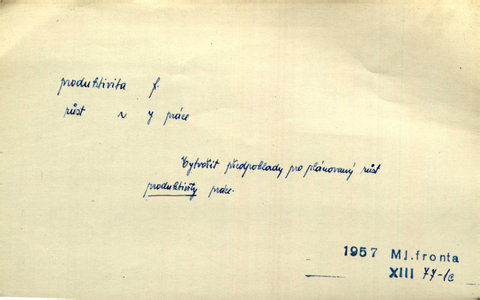 produktivita f.
růst ~ y práce
Vytvořit předpoklady pro plánovaný růst
produktivity práce.
1957 Ml.fronta
XIII 77-1c